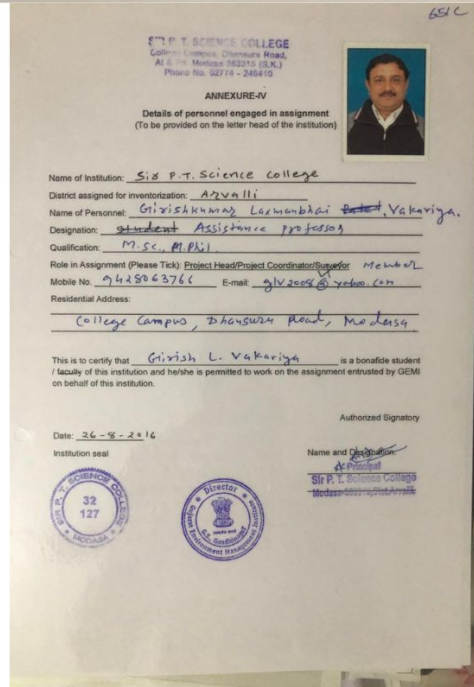 651C
SIR P. T. SCIENCE COLLEGE
College Campus, Dhansura Road,
At & Po. Modasa 383315 (S.K.)
Phone No. 02774 - 246415
ANNEXURE-IV
Details of personnel engaged in assignment
(To be provided on the letter head of the institution)
Name of Institution: Sir P.T. Science College
District assigned for inventorization: Arvalli
Name of Personnel: Girishkumar Laxmanbhai Vakariya.
Designation: Student Assistance professor
Qualification: M.Sc., M.Phil
Role in Assignment (Please Tick): Project Head/Project Coordinator/Surveyor Member
Mobile No. 9428063766 E-mail: glv2008@yahoo.com
Residential Address:
College Campus, Dhansura Road, Modasa
This is to certify that Girish L. Vakariya is a bonafide student
/ faculty of this institution and he/she is permitted to work on the assignment entrusted by GEMI
on behalf of this institution.
Authorized Signatory
Date: 26-8-2016
Institution seal
Name and Designation
Principal
Sir P. T. Science College
SIR P. T. SCIENCE COLLEGE
32
127
MODASA
Director
Gujarat Environment Management Institute
G.S. Gandhinagar